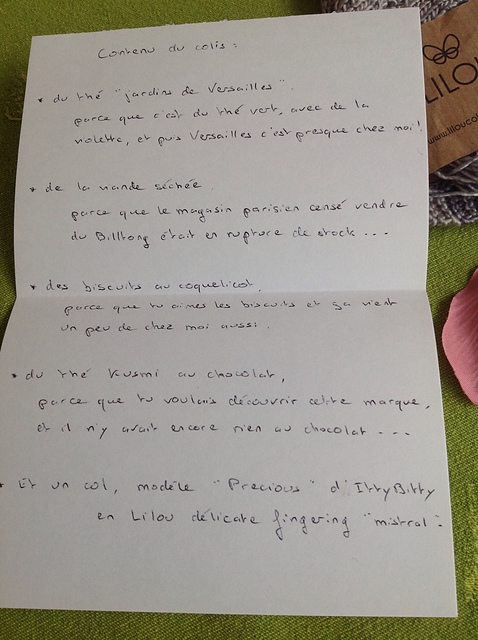 Contenu du colis :
* du thé "jardins de Versailles".
parce que c'est du thé vert, avec de la
violette, et puis Versailles c'est presque chez moi !
* de la viande séchée
parce que le magasin parisien censé vendre
du Billtong était en rupture de stock ...
* des biscuits au coquelicot,
parce que tu aimes les biscuits et ça vient
un peu de chez moi aussi.
* du thé Kusmi au chocolat,
parce que tu voulais découvrir cette marque,
et il n'y avait encore rien au chocolat ...
* Et un col, modèle "Precious" d'IttyBitty
en Lilou délicate fingering "mistral".
LILOU
www.liloucol